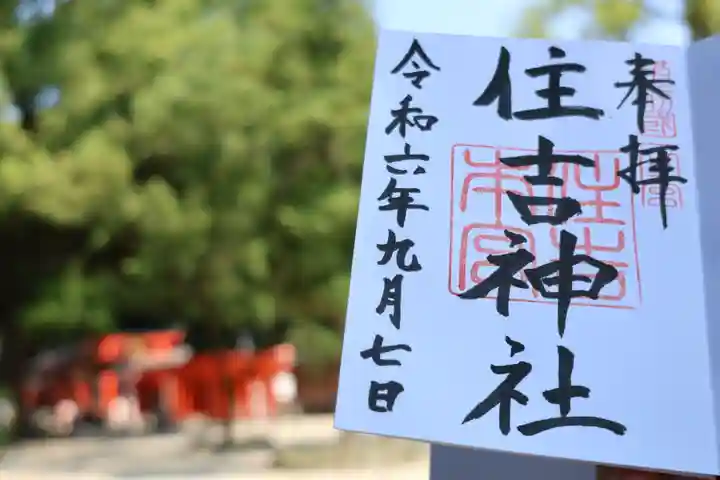 奉拝
住吉神社
住吉
本宮
令和六年九月七日